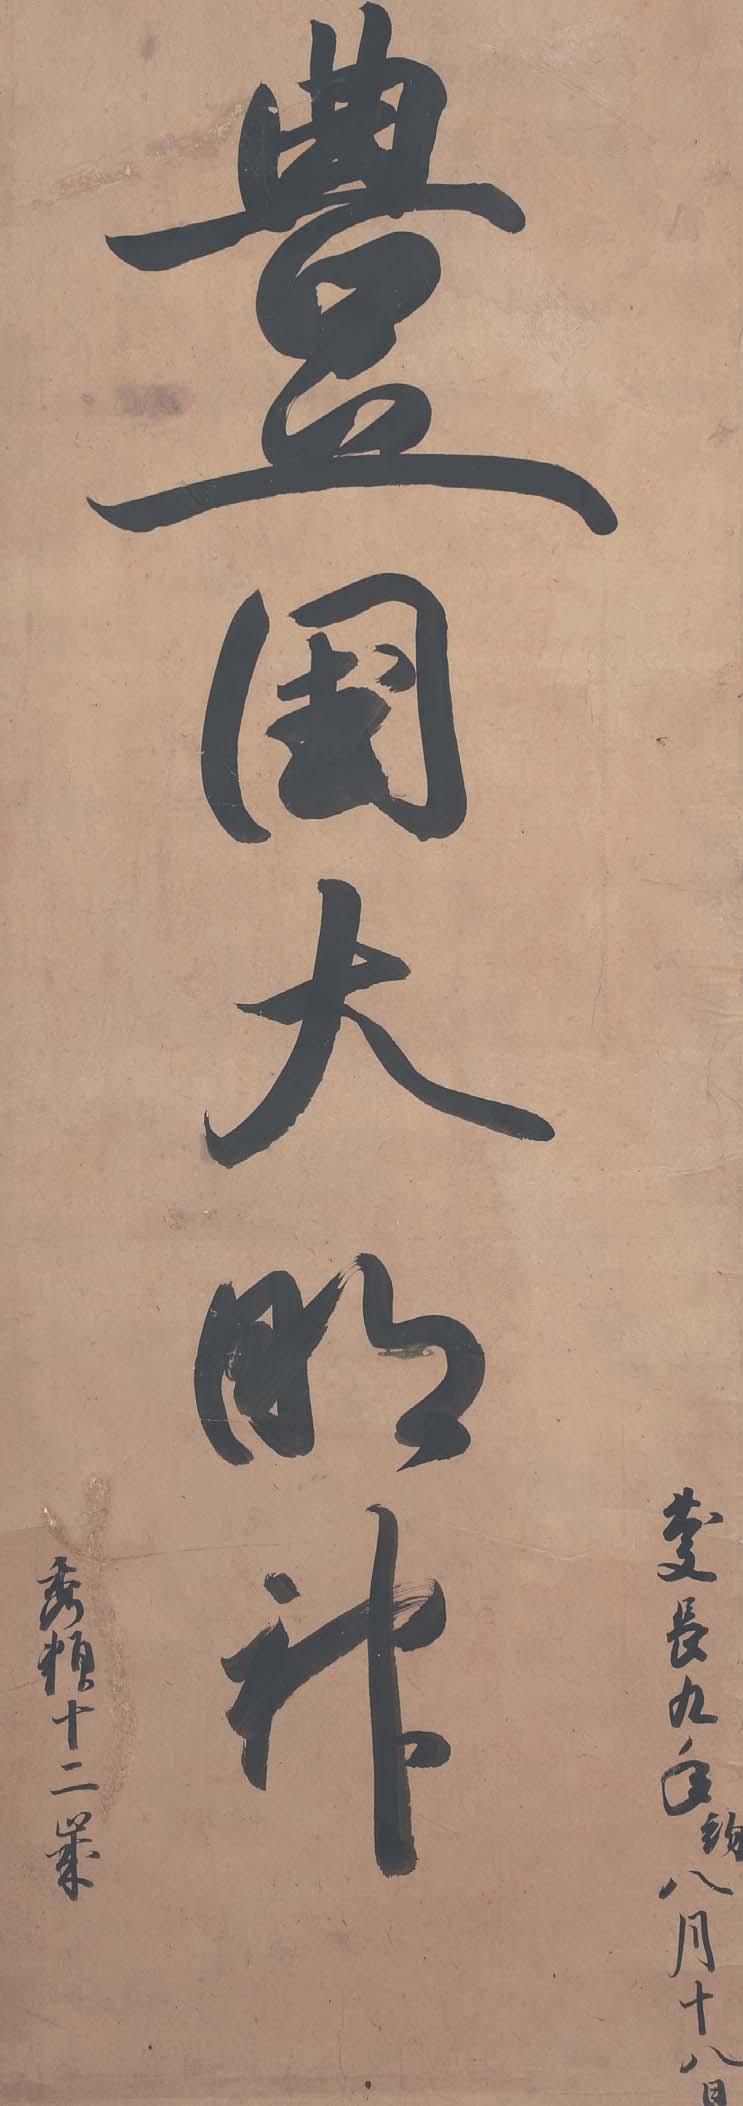 慶長九年八月十八日
豊国大明神
秀頼十二歳